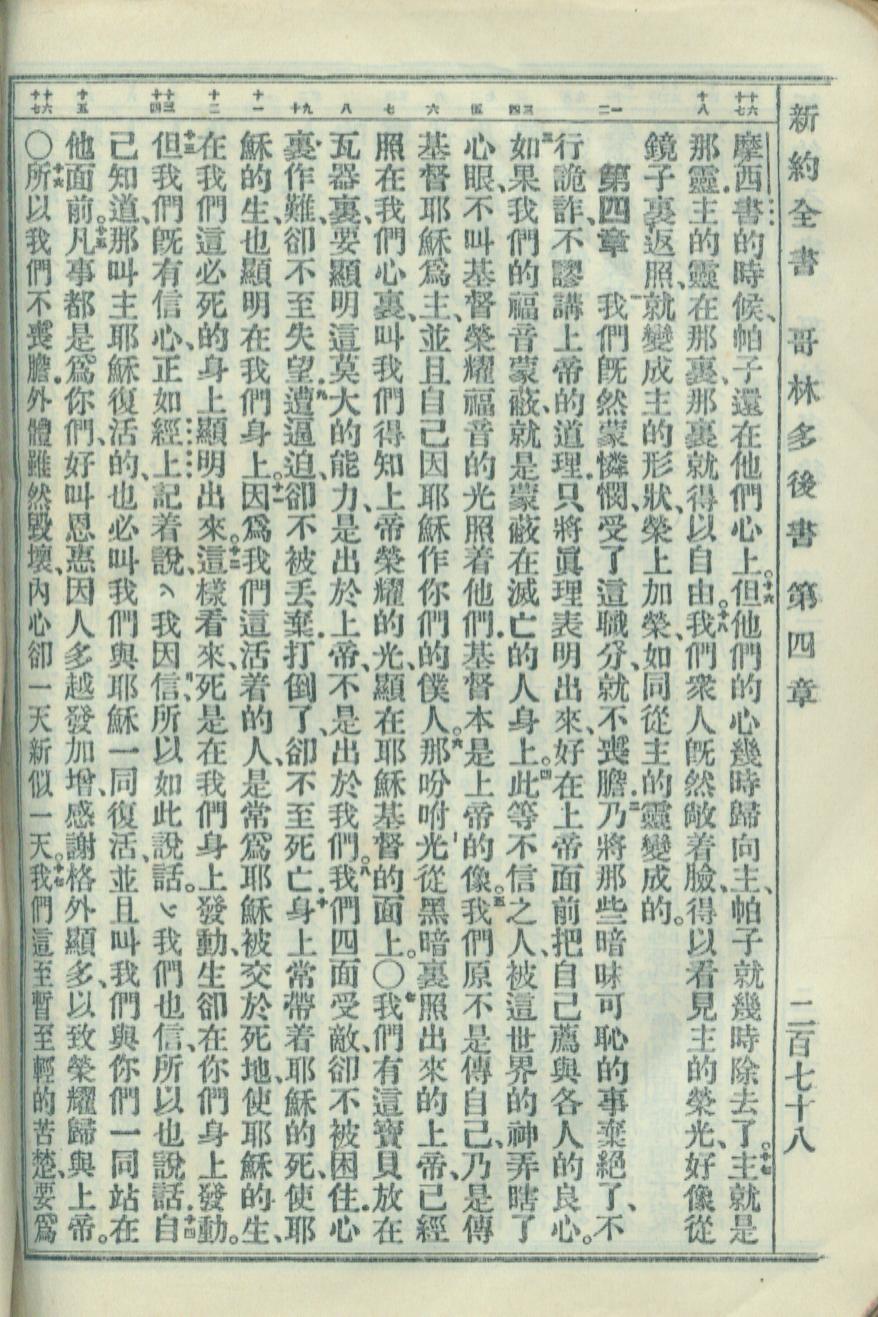 新約全書 哥林多後書 第四章 二百七十八
十六 十七 十八 一 二 三 四 五 六 七 八 九 十 十一 十二 十三 十四 十五 十六 十七
摩西書的時候、帕子還在他們心上。十六但他們的心幾時歸向主、帕子就幾時除去了。十七主就是
那靈主的靈在那裏、那裏就得以自由。十八我們衆人既然敞着臉、得以看見主的榮光、好像從
鏡子裏返照、就變成主的形狀、榮上加榮、如同從主的靈變成的。
第四章 一我們既然蒙憐憫、受了這職分、就不喪膽、二乃將那些暗昧可恥的事棄絕了、不
行詭詐、不謬講上帝的道理、只將眞理表明出來、好在上帝面前把自己薦與各人的良心。
三如果我們的福音蒙蔽、就是蒙蔽在滅亡的人身上。四此等不信之人、被這世界的神弄瞎了
心眼、不叫基督榮耀福音的光照着他們、基督本是上帝的像。五我們原不是傳自己、乃是傳
基督耶穌爲主、並且自己因耶穌作你們的僕人。六那吩咐光從黑暗裏照出來的上帝、已經
照在我們心裏、叫我們得知上帝榮耀的光、顯在耶穌基督的面上。○七我們有這寶貝放在
瓦器裏、要顯明這莫大的能力、是出於上帝、不是出於我們。八我們四面受敵、卻不被困住、心
裏作難、卻不至失望、九遭逼迫、卻不被丟棄、打倒了、卻不至死亡、十身上常帶着耶穌的死、使耶
穌的生、也顯明在我們身上。十一因爲我們這活着的人、是常爲耶穌被交於死地、使耶穌的生、
在我們這必死的身上顯明出來。十二這樣看來、死是在我們身上發動、生卻在你們身上發動。
十三但我們既有信心、正如經上記着說、我因信、所以如此說話。我們也信、所以也說話、十四自
己知道、那叫主耶穌復活的、也必叫我們與耶穌一同復活、並且叫我們與你們一同站在
他面前。十五凡事都是爲你們、好叫恩惠因人多越發加增、感謝格外顯多、以致榮耀歸與上帝。
○十六所以我們不喪膽、外體雖然毀壞、內心卻一天新似一天。十七我們這至暫至輕的苦楚、要爲